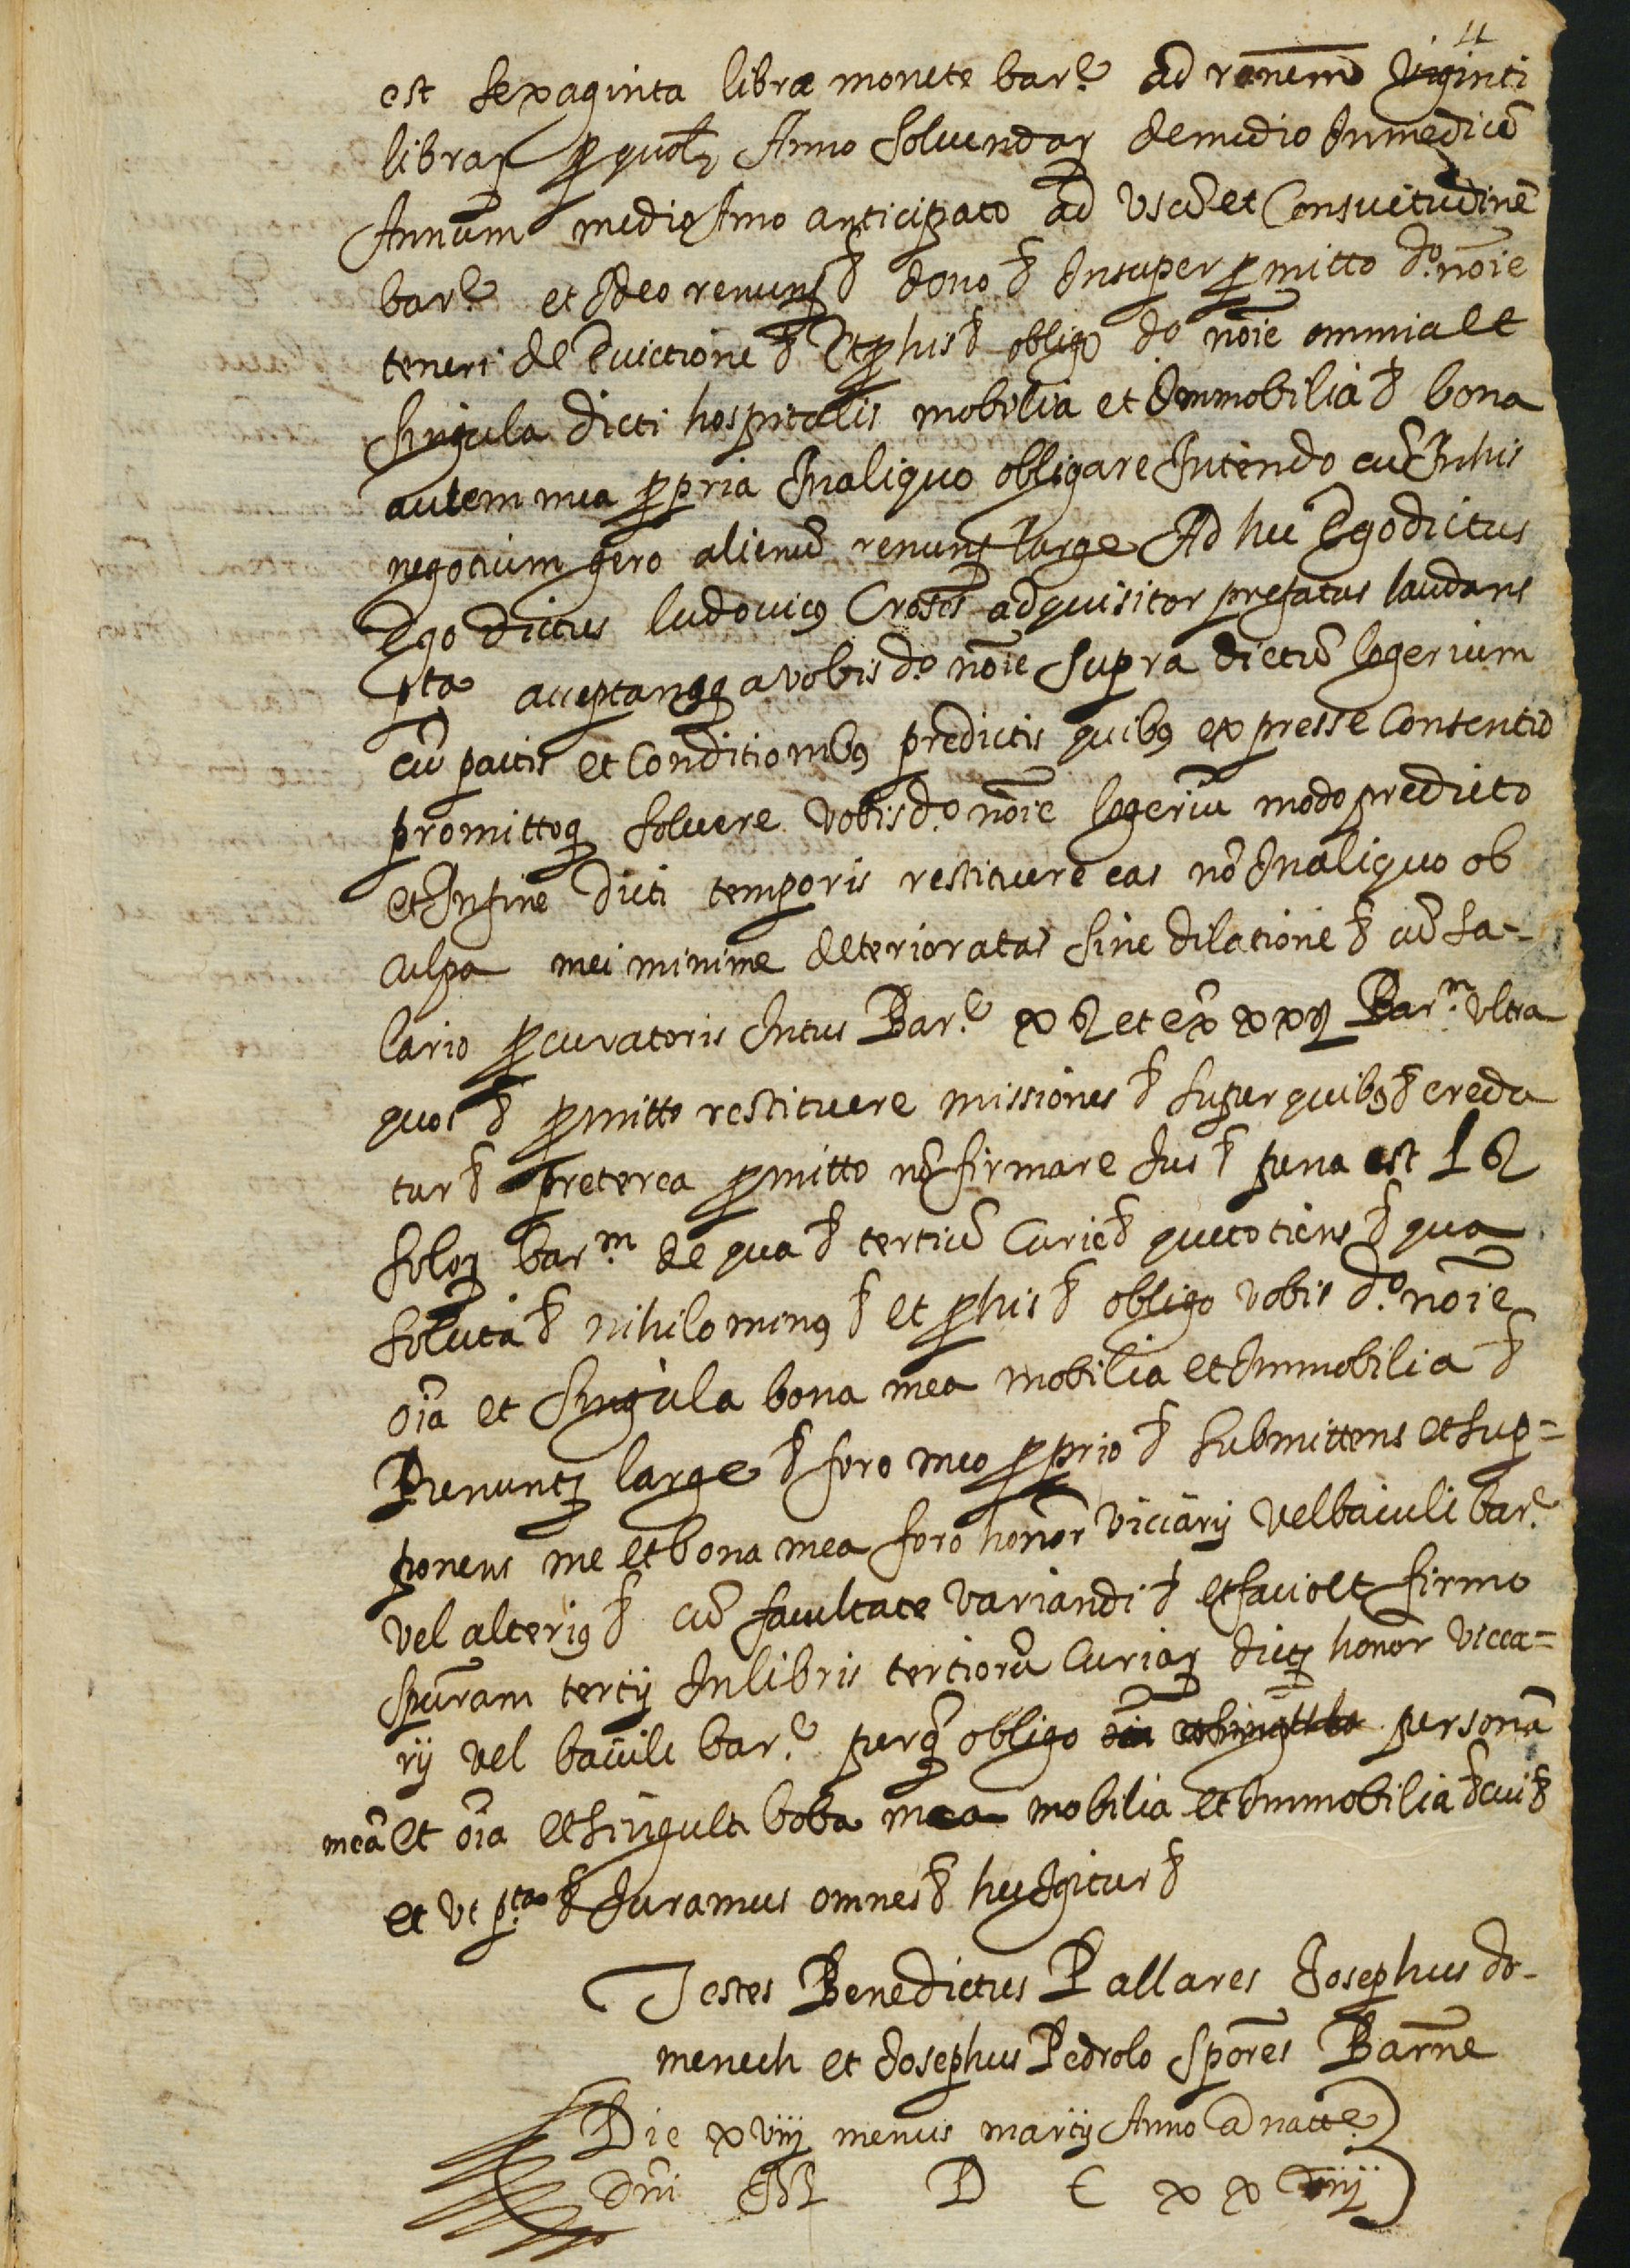 11
est sexaginta libræ monete barᵉ ad ronem viginti
librar̃ p quolꝫ Anno solvendaꝝ de medio In mediũ
Annum medio Anno anticipato ad Usũ et Consuetudinẽ
barᵉ et Ideo renunꝭ &̃ dono &̃ Insuper pmitto dº. noĩe
teneri de Evictione &̃ Et p his &̃ obligo dº noĩe omnia et
singula dicti hospitalis mobilia et Immobilia &̃ bona
autem mea ppria In aliquo obligare Intendo cũ In his
negotium gero alienũ renunꝭ large Ad hec Ego dictus
Ego dictus ludovicꝰ Croses adquisitor prefatus laudans
pta acceptansqꝫ a vobis dº noĩe supra dictũ logerium
cũ pactis et Conditionibꝰ predictis quibꝰ expresse Consentio
promittoqꝫ solvere vobis dº. noĩe logeriũ modo predicto
et In fine dicti temporis restituere eas nõ In aliquo ob
culpa mei minime deterioratas sine dilatione &̃ cũ sa-
lario pcuratoris Intus Barᵉ x ß et ex̃ xx ß Barᵐ. ultra
quos &̃ pmitto restituere missiones &̃ super quibꝰ &̃ creda
tur &̃ preterea pmitto nõ firmare Jus &̃ pena est L ß
soloꝝ barᵐ. de qua &̃ tertiũ Curie &̃ quecotiens &̃ qua
soluta &̃ nihilominꝰ &̃ et p his &̃ obligo vobis dº. noĩe
oĩa et singula bona mea mobilia et Immobilia &̃
Renuntꝭ large &̃ foro meo pprio &̃ submittens et sup=
ponens me et bona mea foro honor̃ viccarij vel baiuli barᵉ.
vel alteriꝰ &̃ cũ facultate variandi &̃ et facio et firmo
spũram tertij In libris tertiorũ Curiaꝝ dictꝝ honor̃ vicca=
rij vel baiuli barᵉ. per qõ obligo oĩa et singula personã
meã et oĩa et singula boba mea mobilia et Immobilia &̃ cui &̃
et ut pta &̃ Juramus omnes &̃ hec Igitur &̃
Testes Benedictus Pallares Josephus do-
menech et Josephus Pedrolo Spores Barñe
Die xviij mensis martij Anno a natte
Dñi M D C xx viiij